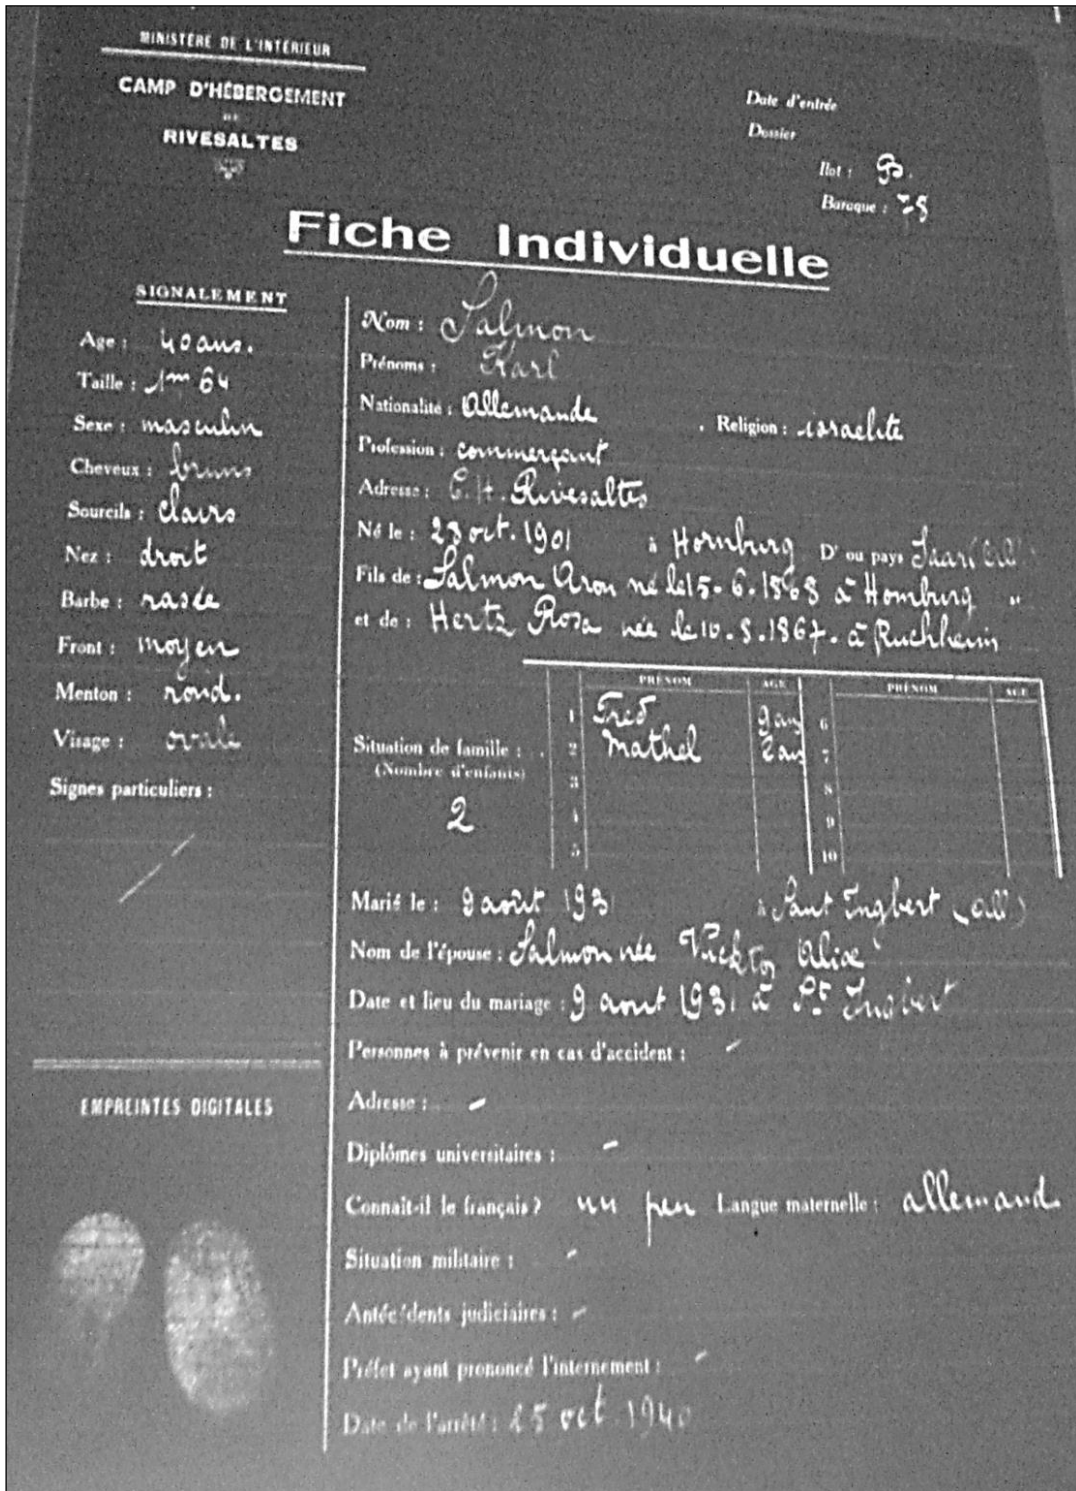 MINISTÈRE DE L'INTÉRIEUR
CAMP D'HÉBERGEMENT
DE
RIVESALTES
Date d'entrée
Dossier
Ilot : B.
Baraque : 78
Fiche Individuelle
SIGNALEMENT
Age : 40 ans.
Taille : 1m 64
Sexe : masculin
Cheveux : bruns
Sourcils : clairs
Nez : droit
Barbe : rasée
Front : moyen
Menton : rond.
Visage : ovale
Signes particuliers :
EMPREINTES DIGITALES
Nom : Salmon
Prénoms : Karl
Nationalité : Allemande . Religion : israelite
Profession : commerçant
Adresse : C.H. Rivesaltes
Né le : 23 oct. 1901 à Homburg Dt ou pays Saar
Fils de : Salmon Aron né le 15-6-1868 à Homburg "
et de : Hertz Rosa née le 10.8.1867. à Ruchheim
Situation de famille :
(Nombre d'enfants)
2
PRÉNOM AGE PRÉNOM AGE
1 Fred 9 ans 6
2 Mathel 2 ans 7
3 8
4 9
5 10
Marié le : 9 août 193 à Sant Ingbert (all)
Nom de l'épouse : Salmon née Vicktor Alice
Date et lieu du mariage : 9 aout 1931 à St Ingbert
Personnes à prévenir en cas d'accident : -
Adresse : -
Diplômes universitaires : -
Connait-il le français ? un peu Langue maternelle : allemand
Situation militaire : -
Antécédents judiciaires : -
Préfet ayant prononcé l'internement : -
Date de l'arrêté : 25 oct. 1940